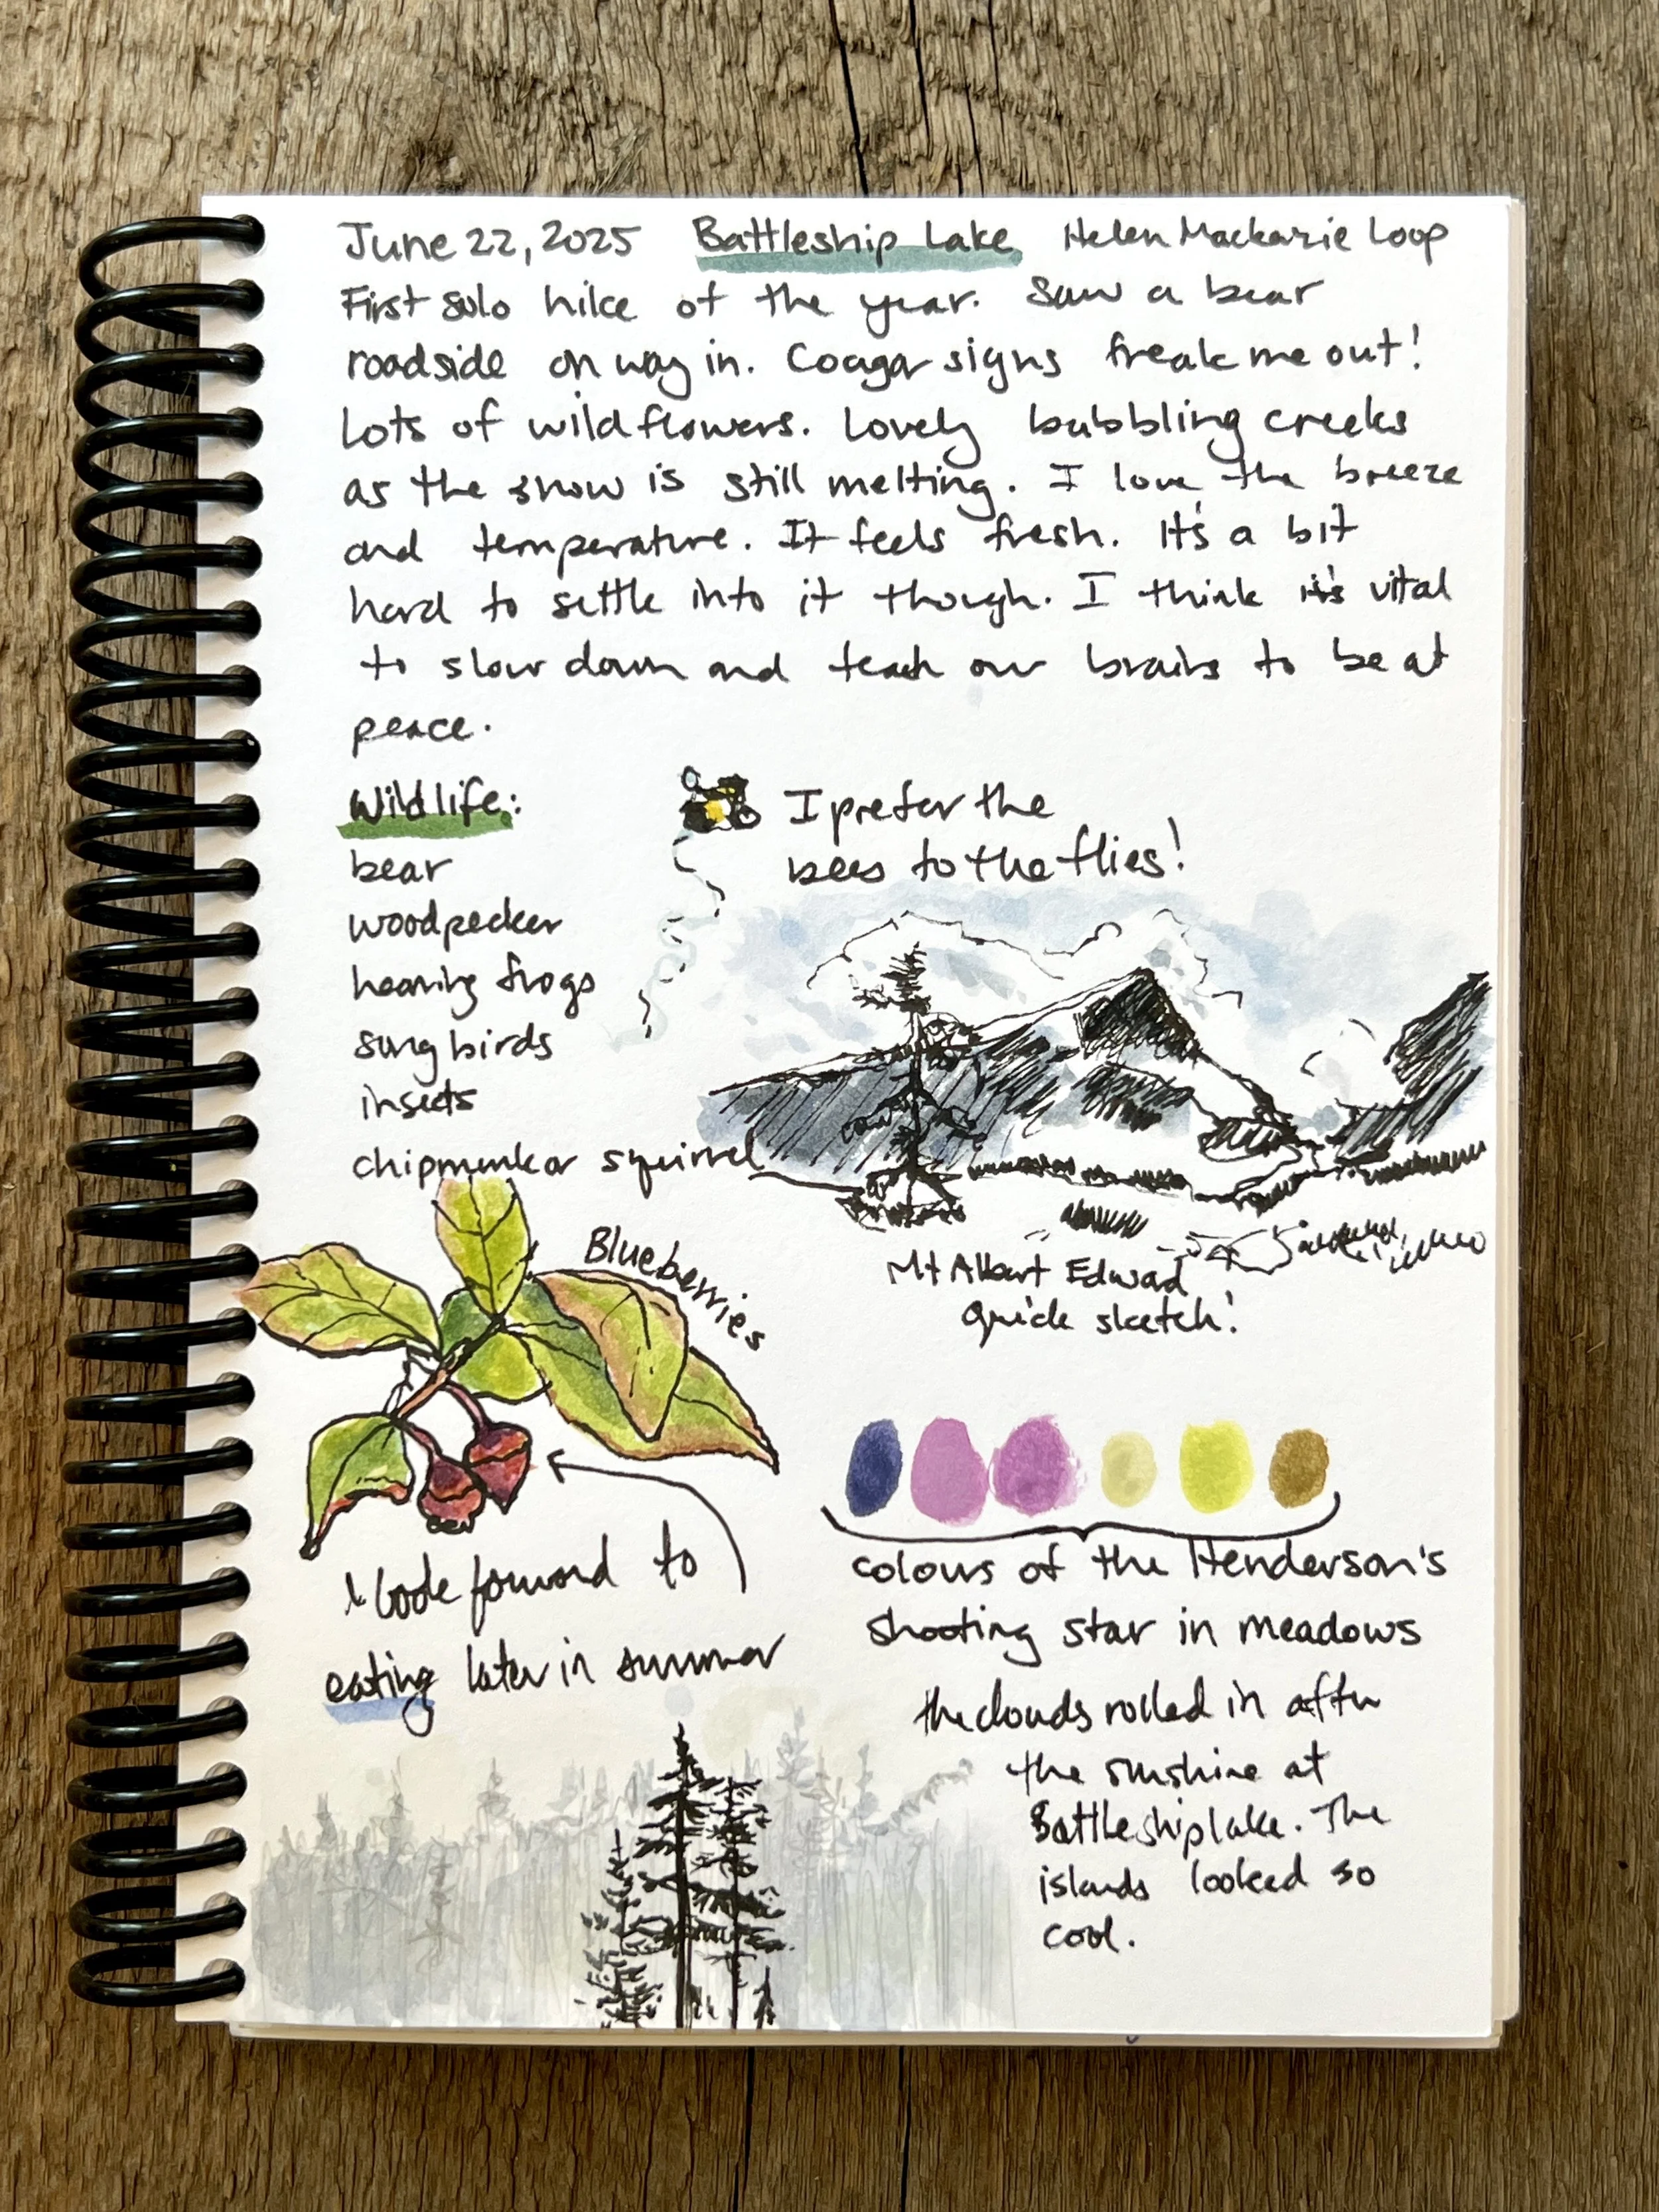 June 22, 2025 Battleship Lake Helen Mackenzie Loop
First solo hike of the year. Saw a bear
roadside on way in. Cougar signs freak me out!
Lots of wildflowers. Lovely bubbling creeks
as the snow is still melting. I love the breeze
and temperature. It feels fresh. It's a bit
hard to settle into it though. I think it's vital
to slow down and teach our brains to be at
peace.
Wildlife:
bear
woodpecker
hearing frogs
song birds
insects
chipmunk or squirrel
I prefer the
bees to the flies!
Mt Albert Edward
quick sketch!
Blueberries
I look forward to
eating later in summer
colours of the Henderson's
shooting star in meadows
the clouds rolled in after
the sunshine at
Battleship lake. The
islands looked so
cool.